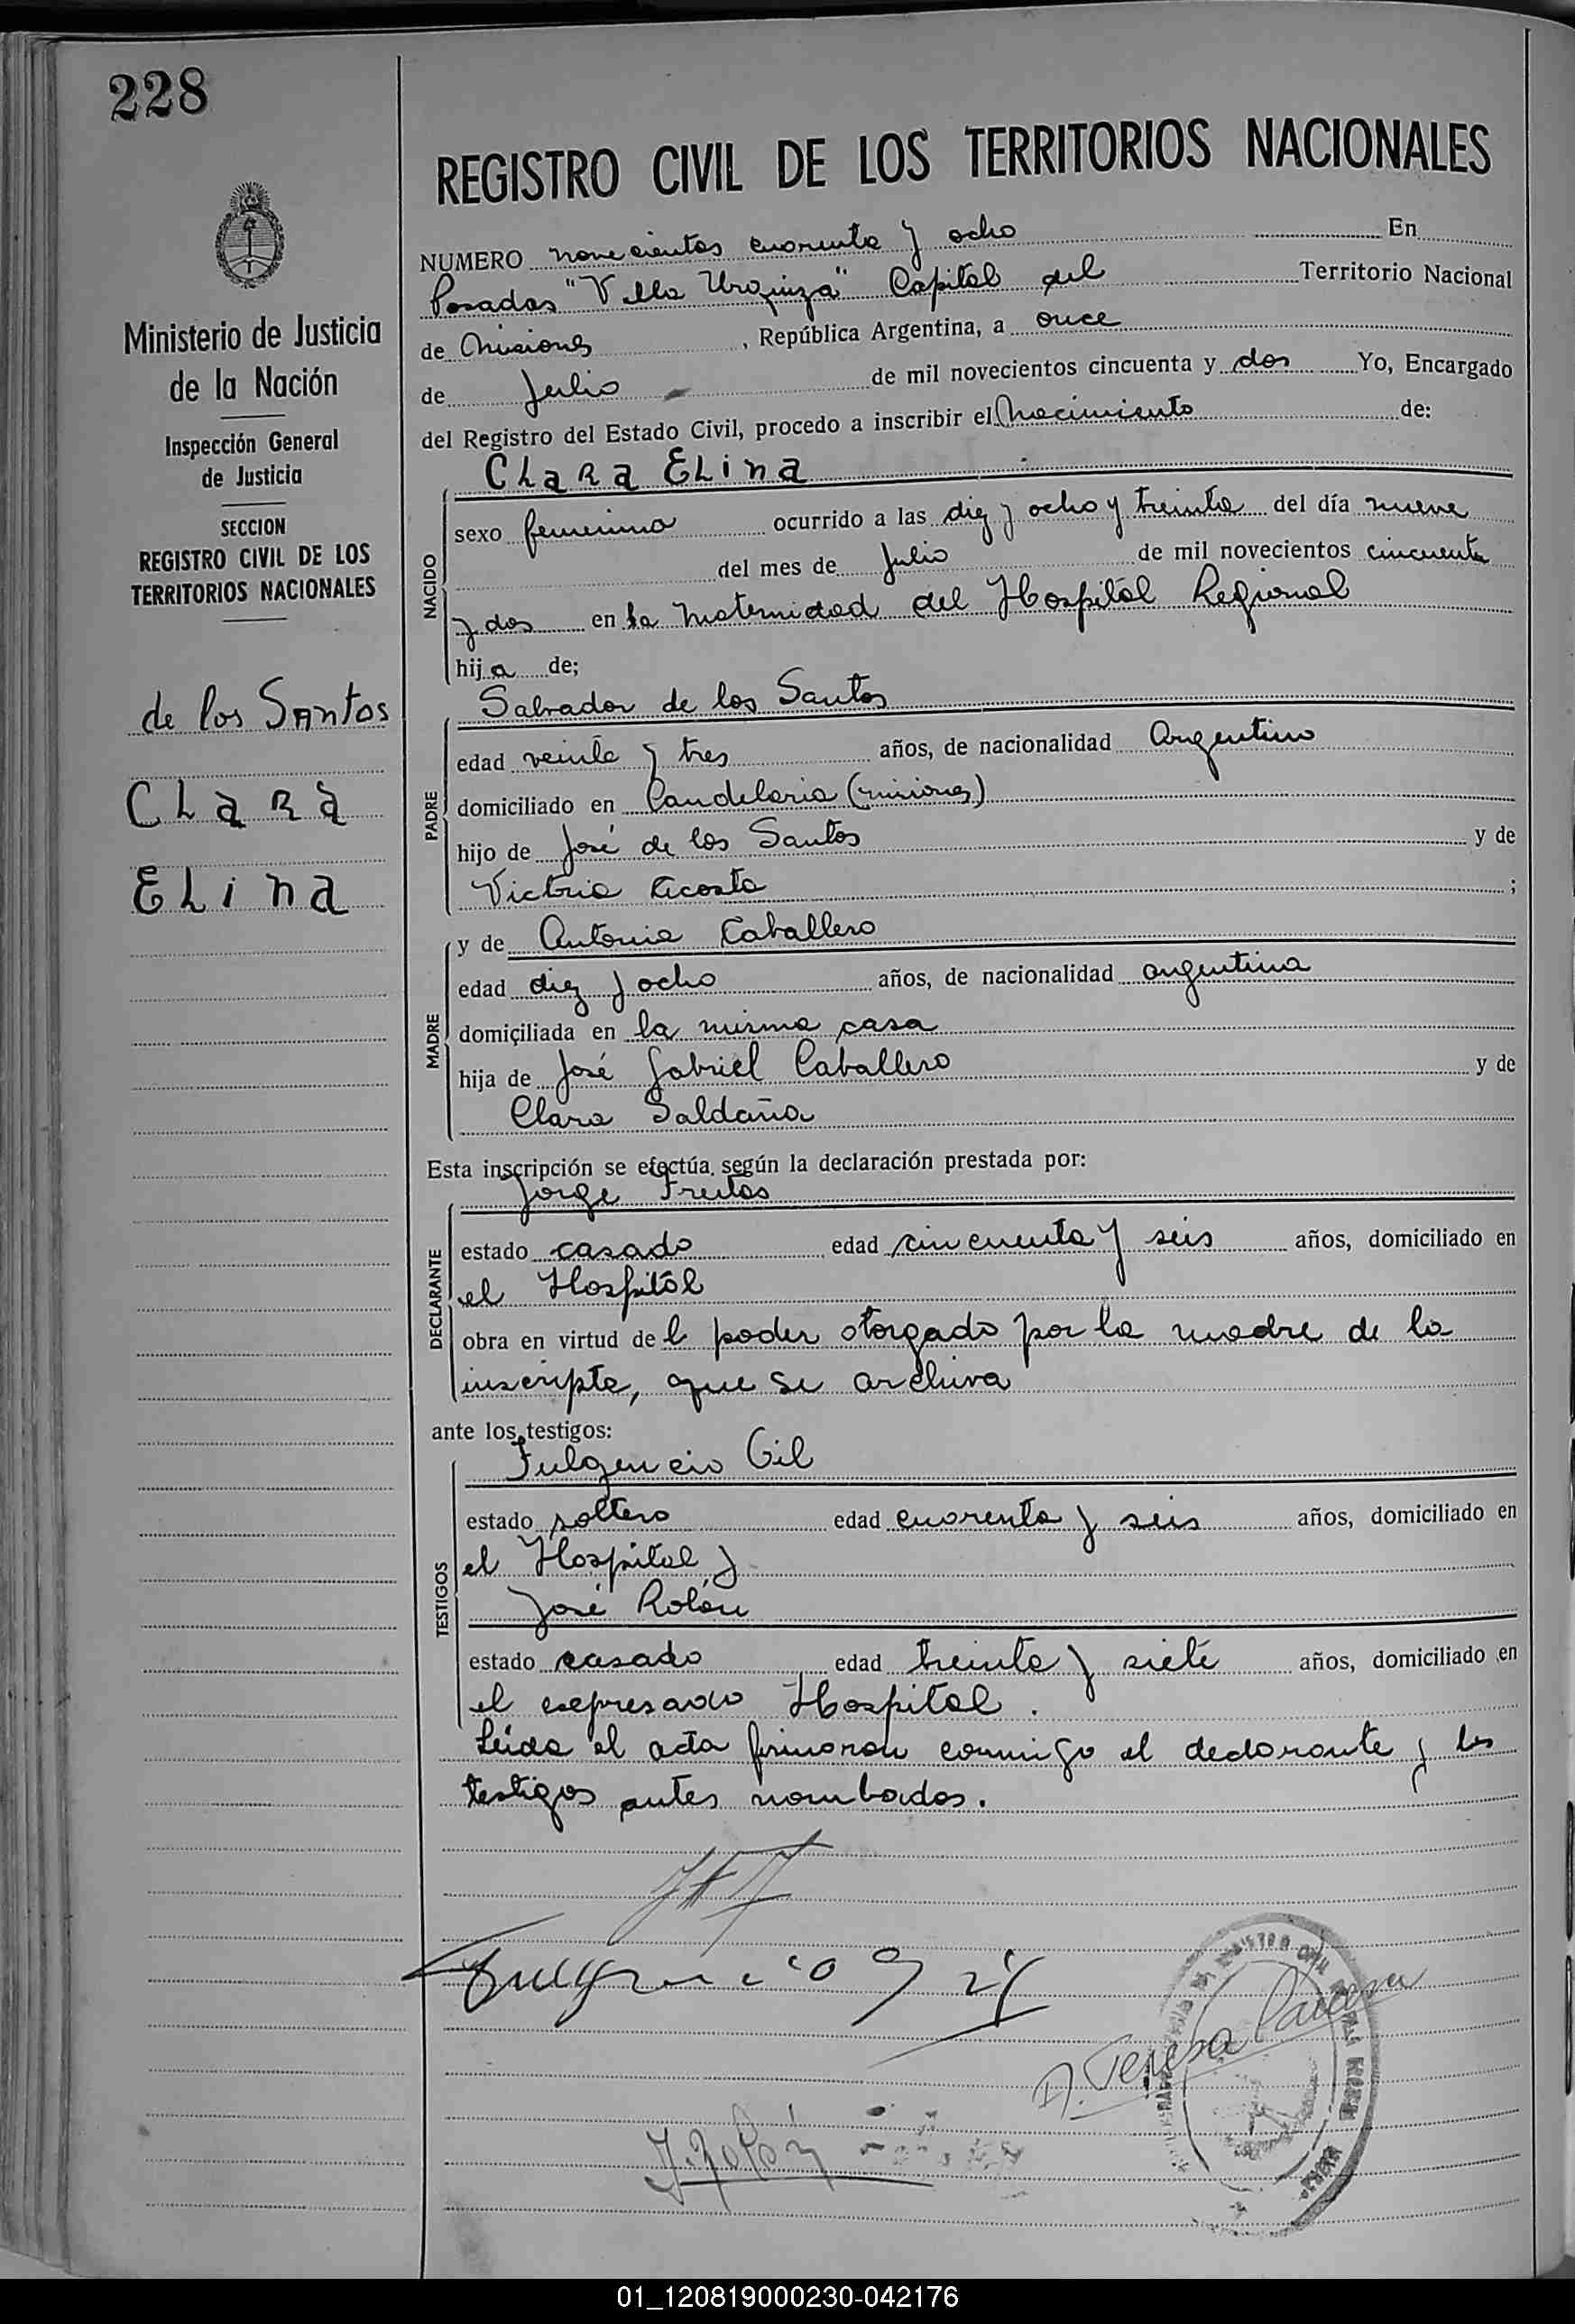 228
Ministerio de Justicia
de la Nación
Inspección General
de Justicia
SECCION
REGISTRO CIVIL DE LOS
TERRITORIOS NACIONALES
de los Santos
Clara
Elina
REGISTRO CIVIL DE LOS TERRITORIOS NACIONALES
NUMERO novecientos cuarenta y ocho En
Posadas "Villa Urquiza" Capital del Territorio Nacional
de Misiones, República Argentina, a once
de Julio de mil novecientos cincuenta y dos Yo, Encargado
del Registro del Estado Civil, procedo a inscribir el Nacimiento de:
Clara Elina
NACIDO
sexo femenino ocurrido a las diez y ocho y treinta del día nueve
del mes de Julio de mil novecientos cincuenta
y dos en la Maternidad del Hospital Regional
hija de;
Salvador de los Santos
PADRE
edad veinte y tres años, de nacionalidad Argentino
domiciliado en Candelaria (Misiones)
hijo de José de los Santos y de
Victoria Acosta ;
MADRE
y de Antonia Caballero
edad diez y ocho años, de nacionalidad argentina
domiciliada en la misma casa
hija de José Gabriel Caballero y de
Clara Saldaña
Esta inscripción se efectúa, según la declaración prestada por:
Jorge Freitas
DECLARANTE
estado casado edad cincuenta y seis años, domiciliado en
el Hospital
obra en virtud del poder otorgado por la madre de la
inscripta, que se archiva
ante los testigos:
Fulgencio Gil
TESTIGOS
estado soltero edad cuarenta y seis años, domiciliado en
el Hospital y
José Rolón
estado casado edad treinta y siete años, domiciliado en
el expresado Hospital.
Leída el acta firmaron conmigo el declarante y los
testigos antes nombados.
Fulgencio Gil
Teresa
J. Rolón
01_120819000230-042176